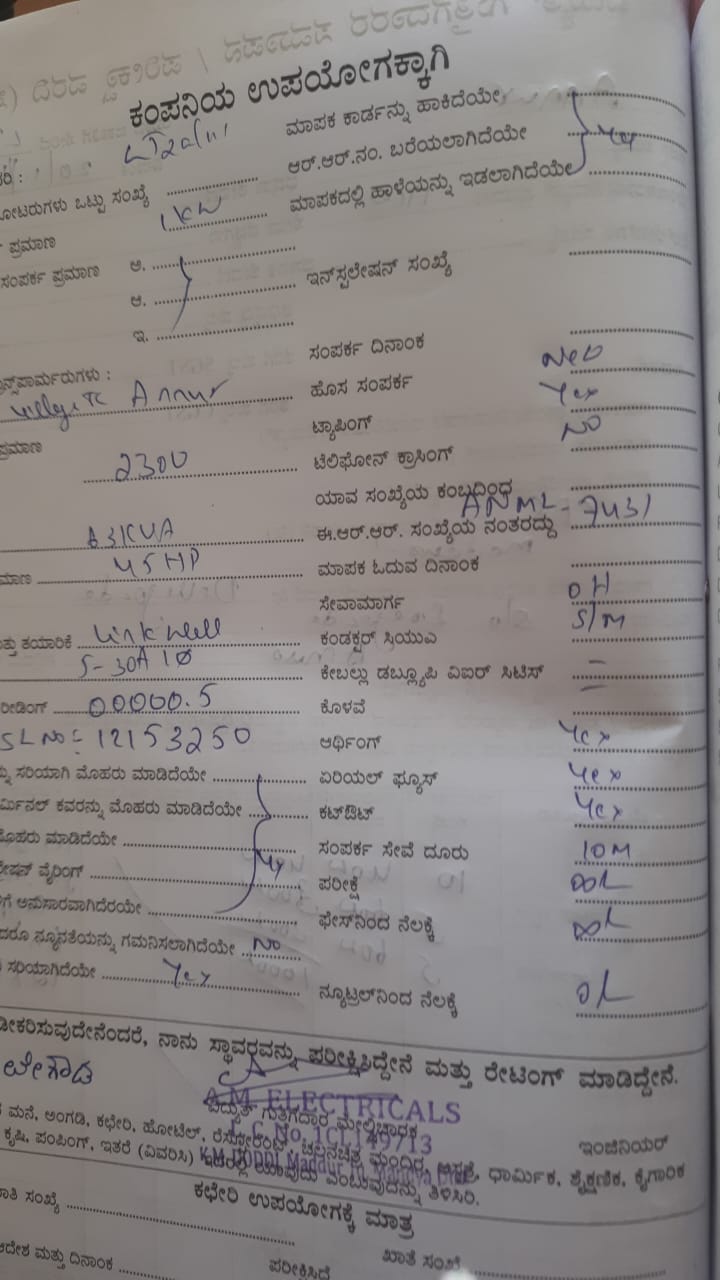 ಕಂಪನಿಯ ಉಪಯೋಗಕ್ಕಾಗಿ
ಮಾಪಕ ಕಾರ್ಡನ್ನು ಹಾಕಿದೆಯೇ
ಆರ್.ಆರ್.ನಂ. ಬರೆಯಲಾಗಿದೆಯೇ
ಮೀಟರುಗಳು ಒಟ್ಟು ಸಂಖ್ಯೆ
ಮಾಪಕದಲ್ಲಿ ಹಾಳೆಯನ್ನು ಇಡಲಾಗಿದೆಯೇ
ಪ್ರಮಾಣ 1KW
ಸಂಪರ್ಕ ಪ್ರಮಾಣ ಅ.
ಆ.
ಇನ್‌ಸ್ಟಲೇಷನ್ ಸಂಖ್ಯೆ
ಇ.
ಸಂಪರ್ಕ ದಿನಾಂಕ
ನ್ಸ್‌ಫಾರ್ಮರುಗಳು :
Annur
ಹೊಸ ಸಂಪರ್ಕ Yes
ಟ್ಯಾಪಿಂಗ್ NO
ಪ್ರಮಾಣ 2300
ಟೆಲಿಫೋನ್ ಕ್ರಾಸಿಂಗ್
ಯಾವ ಸಂಖ್ಯೆಯ ಕಂಬದಿಂದ
63KVA
ಈ.ಆರ್.ಆರ್. ಸಂಖ್ಯೆಯ ನಂತರದ್ದು ANML-7431
ಮಾಣ 45HP
ಮಾಪಕ ಓದುವ ದಿನಾಂಕ
ಸೇವಾಮಾರ್ಗ OH
ತ್ತು ತಯಾರಿಕೆ Linkwell
ಕಂಡಕ್ಟರ್ ಸಿಯುಎ S/M
5-30A 1Ø
ಕೇಬಲ್ಲು ಡಬ್ಲ್ಯೂಪಿ ವಿಐಆರ್ ಸಿಟಿಸ್ –
ರೀಡಿಂಗ್ 00000.5
ಕೊಳವೆ –
SL No = 12153250
ಆರ್ಥಿಂಗ್ Yes
ನ್ನು ಸರಿಯಾಗಿ ಮೊಹರು ಮಾಡಿದೆಯೇ
ಏರಿಯಲ್ ಫ್ಯೂಸ್ Yes
ರ್ಮಿನಲ್ ಕವರನ್ನು ಮೊಹರು ಮಾಡಿದೆಯೇ
ಕಟ್‌ಔಟ್ Yes
ಮೊಹರು ಮಾಡಿದೆಯೇ
ಸಂಪರ್ಕ ಸೇವೆ ದೂರು 10M
ಷನ್ ವೈರಿಂಗ್
ಪರೀಕ್ಷೆ
ಗೆ ಅನುಸಾರವಾಗಿದೆರಯೇ
ಫೇಸ್‌ನಿಂದ ನೆಲಕ್ಕೆ
ದರೂ ನ್ಯೂನತೆಯನ್ನು ಗಮನಿಸಲಾಗಿದೆಯೇ NO
ಸರಿಯಾಗಿದೆಯೇ Yes
ನ್ಯೂಟ್ರಲ್‌ನಿಂದ ನೆಲಕ್ಕೆ
ಡೀಕರಿಸುವುದೇನೆಂದರೆ, ನಾನು ಸ್ಥಾವರವನ್ನು ಪರೀಕ್ಷಿಸಿದ್ದೇನೆ ಮತ್ತು ರೇಟಿಂಗ್ ಮಾಡಿದ್ದೇನೆ.
A.M. ELECTRICALS
ವಿದ್ಯುತ್ ಗುತ್ತಿಗೆದಾರ ಮೇಲ್ವಿಚಾರಕ
ಇಂಜಿನಿಯರ್
ಮನೆ, ಅಂಗಡಿ, ಕಛೇರಿ, ಹೋಟೆಲ್, ರೆಸ್ಟೋರೆಂಟ್, ಚಲನಚಿತ್ರ ಮಂದಿರ, ಆಸ್ಪತ್ರೆ, ಧಾರ್ಮಿಕ, ಶೈಕ್ಷಣಿಕ, ಕೈಗಾರಿಕ
ಕೃಷಿ, ಪಂಪಿಂಗ್, ಇತರೆ (ವಿವರಿಸಿ) ಇದರಲ್ಲಿ ಯಾವುದು ಎಂಬುವುದನ್ನು ತಿಳಿಸಿರಿ.
ಕಛೇರಿ ಉಪಯೋಗಕ್ಕೆ ಮಾತ್ರ
ಖಾತೆ ಸಂಖ್ಯೆ
ಆದೇಶ ಮತ್ತು ದಿನಾಂಕ
ಪರೀಕ್ಷಿಸಿದೆ